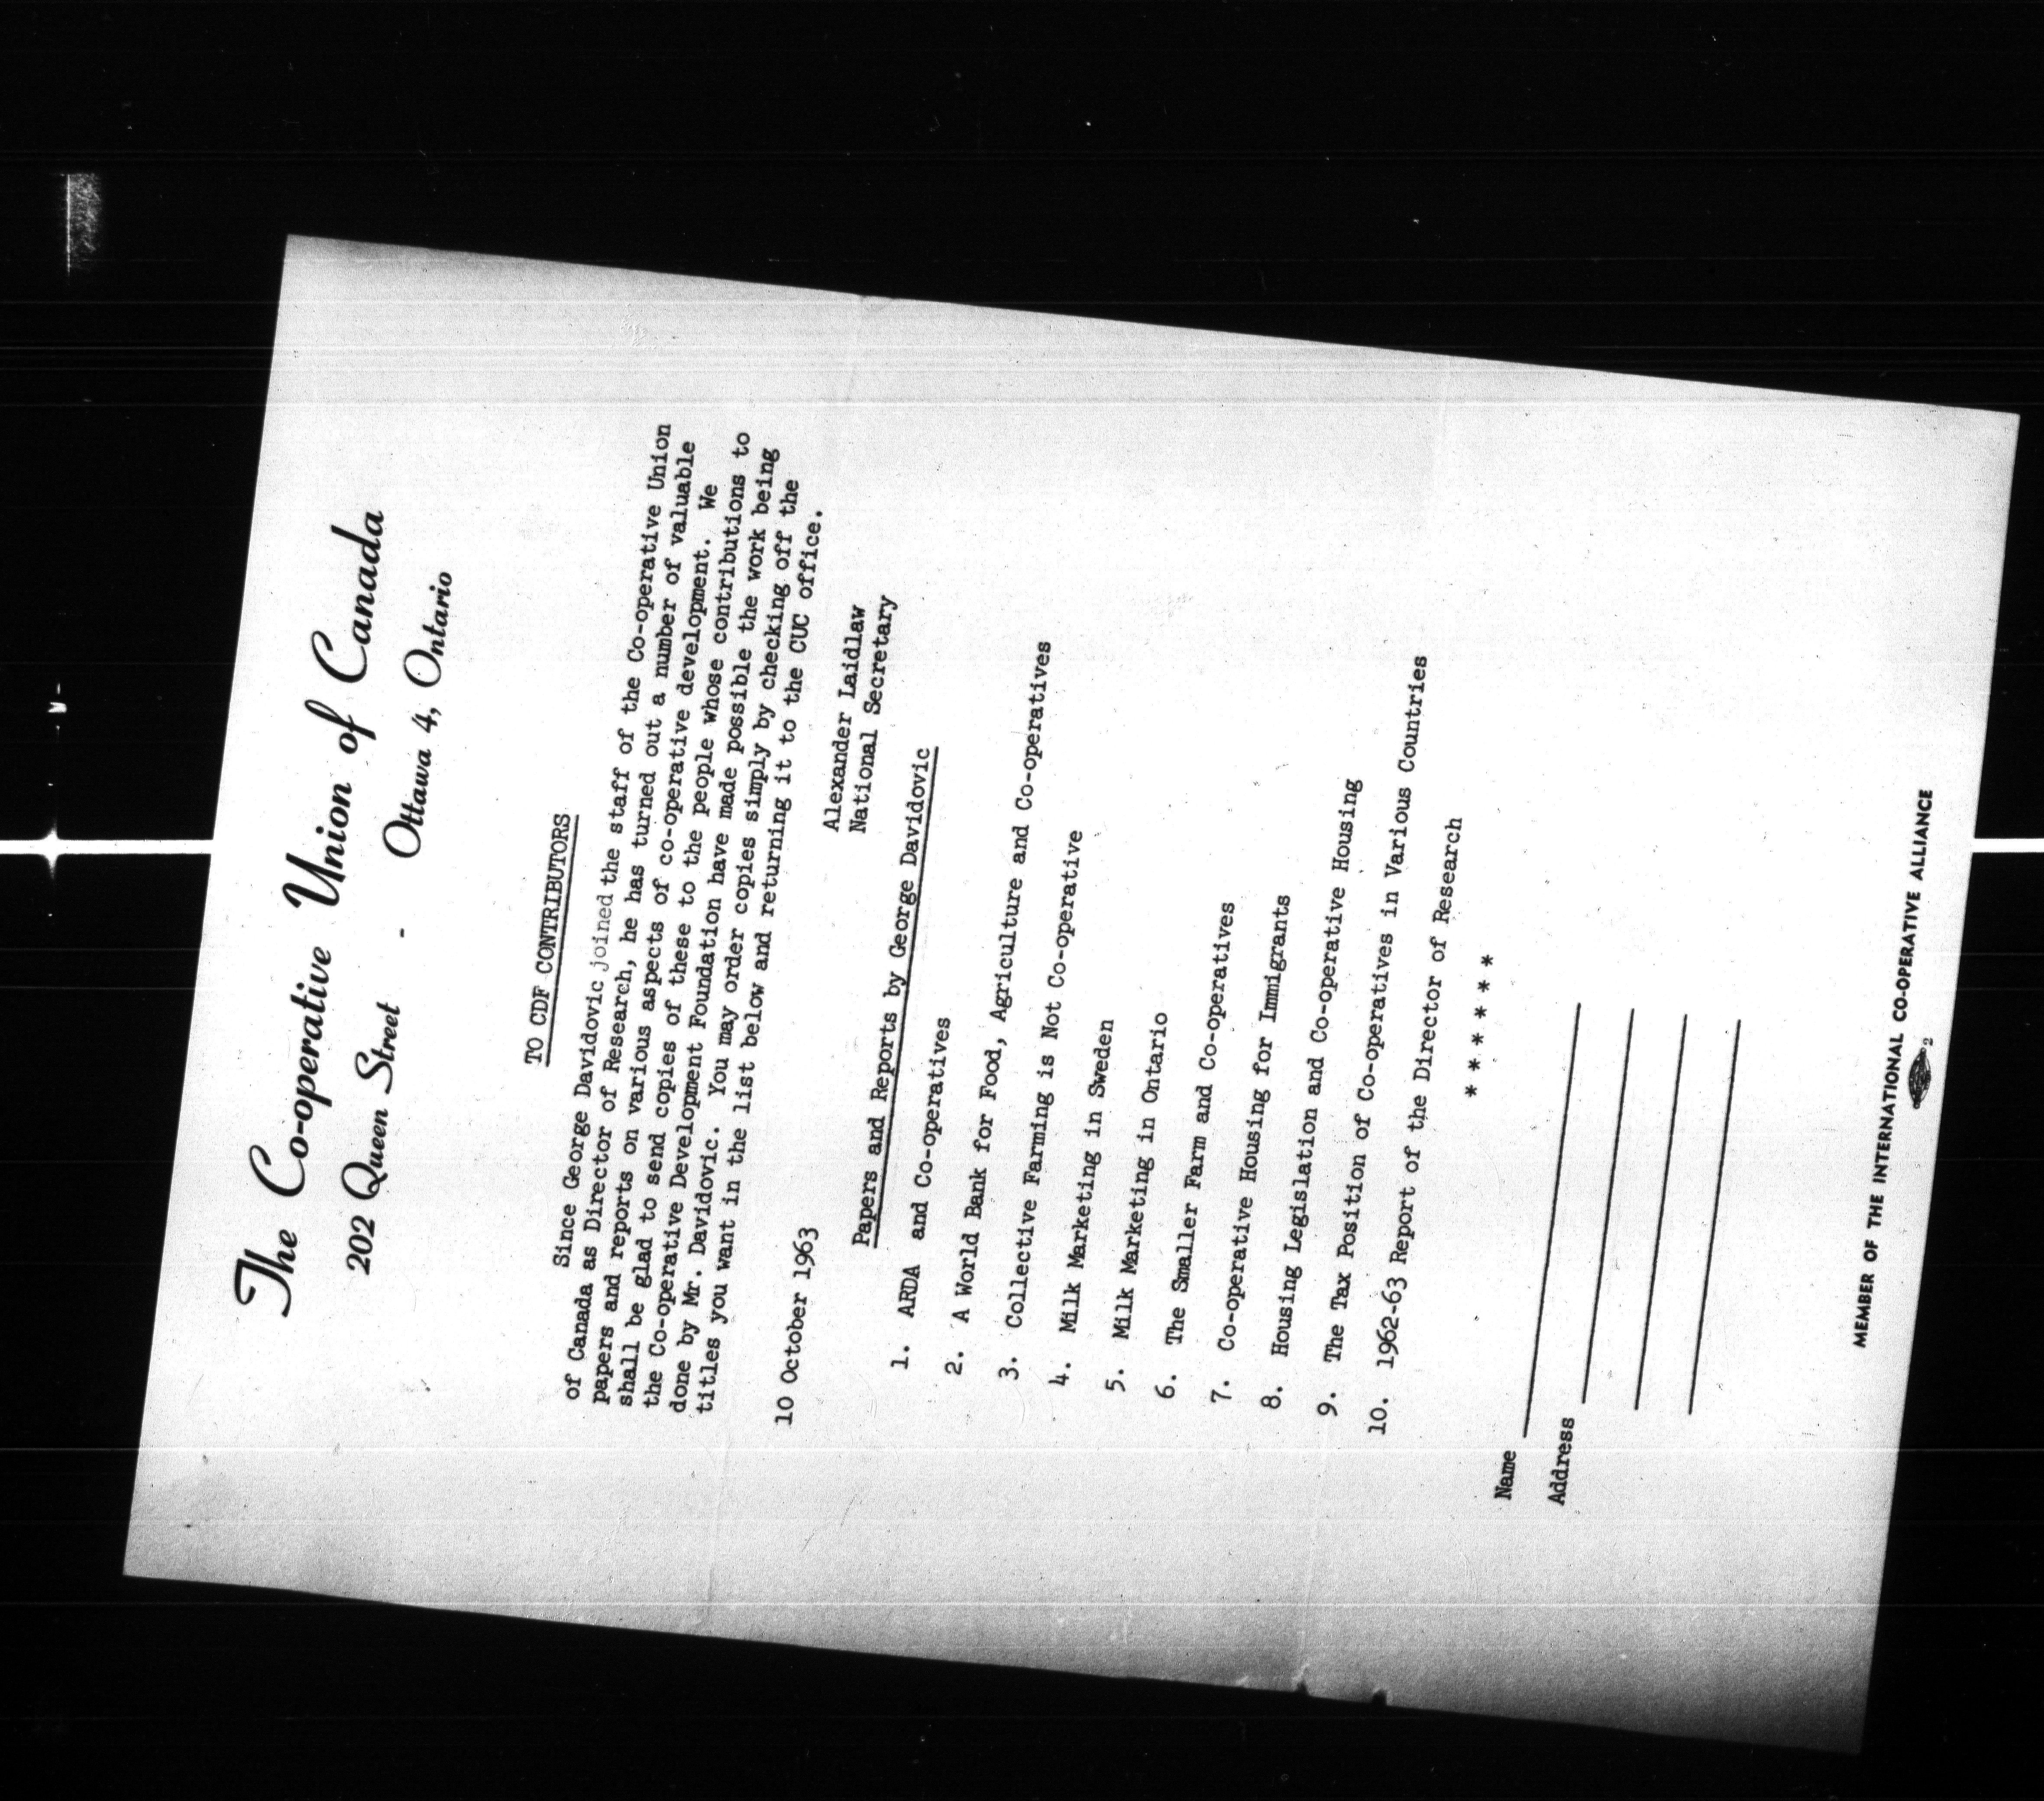 The Co-operative Union of Canada
202 Queen Street - Ottawa 4, Ontario
TO CDF CONTRIBUTORS
Since George Davidovic joined the staff of the Co-operative Union
of Canada as Director of Research, he has turned out a number of valuable
papers and reports on various aspects of co-operative development. We
shall be glad to send copies of these to the people whose contributions to
the Co-operative Development Foundation have made possible the work being
done by Mr. Davidovic. You may order copies simply by checking off the
titles you want in the list below and returning it to the CUC office.
Alexander Laidlaw
National Secretary
10 October 1963
Papers and Reports by George Davidovic
1. ARDA and Co-operatives
2. A World Bank for Food, Agriculture and Co-operatives
3. Collective Farming is Not Co-operative
4. Milk Marketing in Sweden
5. Milk Marketing in Ontario
6. The Smaller Farm and Co-operatives
7. Co-operative Housing for Immigrants
8. Housing Legislation and Co-operative Housing
9. The Tax Position of Co-operatives in Various Countries
10. 1962-63 Report of the Director of Research
* * * * * *
Name
Address
MEMBER OF THE INTERNATIONAL CO-OPERATIVE ALLIANCE
2